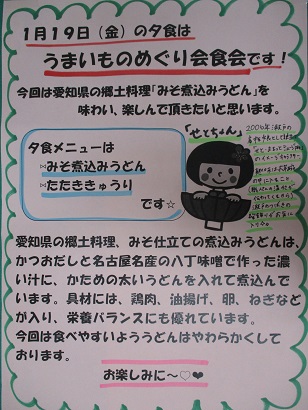 1月19日（金）の夕食は
うまいものめぐり会食会です！
今回は愛知県の郷土料理「みそ煮込みうどん」を
味わい、楽しんで頂きたいと思います。
夕食メニューは
みそ煮込みうどん
たたききゅうり
です☆
「せとちゃん」
愛知県の郷土料理、みそ仕立ての煮込みうどんは、
かつおだしと名古屋名産の八丁味噌で作った濃
い汁に、かための太いうどんを入れて煮込んで
います。具材には、鶏肉、油揚げ、卵、ねぎなど
が入り、栄養バランスにも優れています。
今回は食べやすいよううどんはやわらかくして
おります。
お楽しみに～♡❤